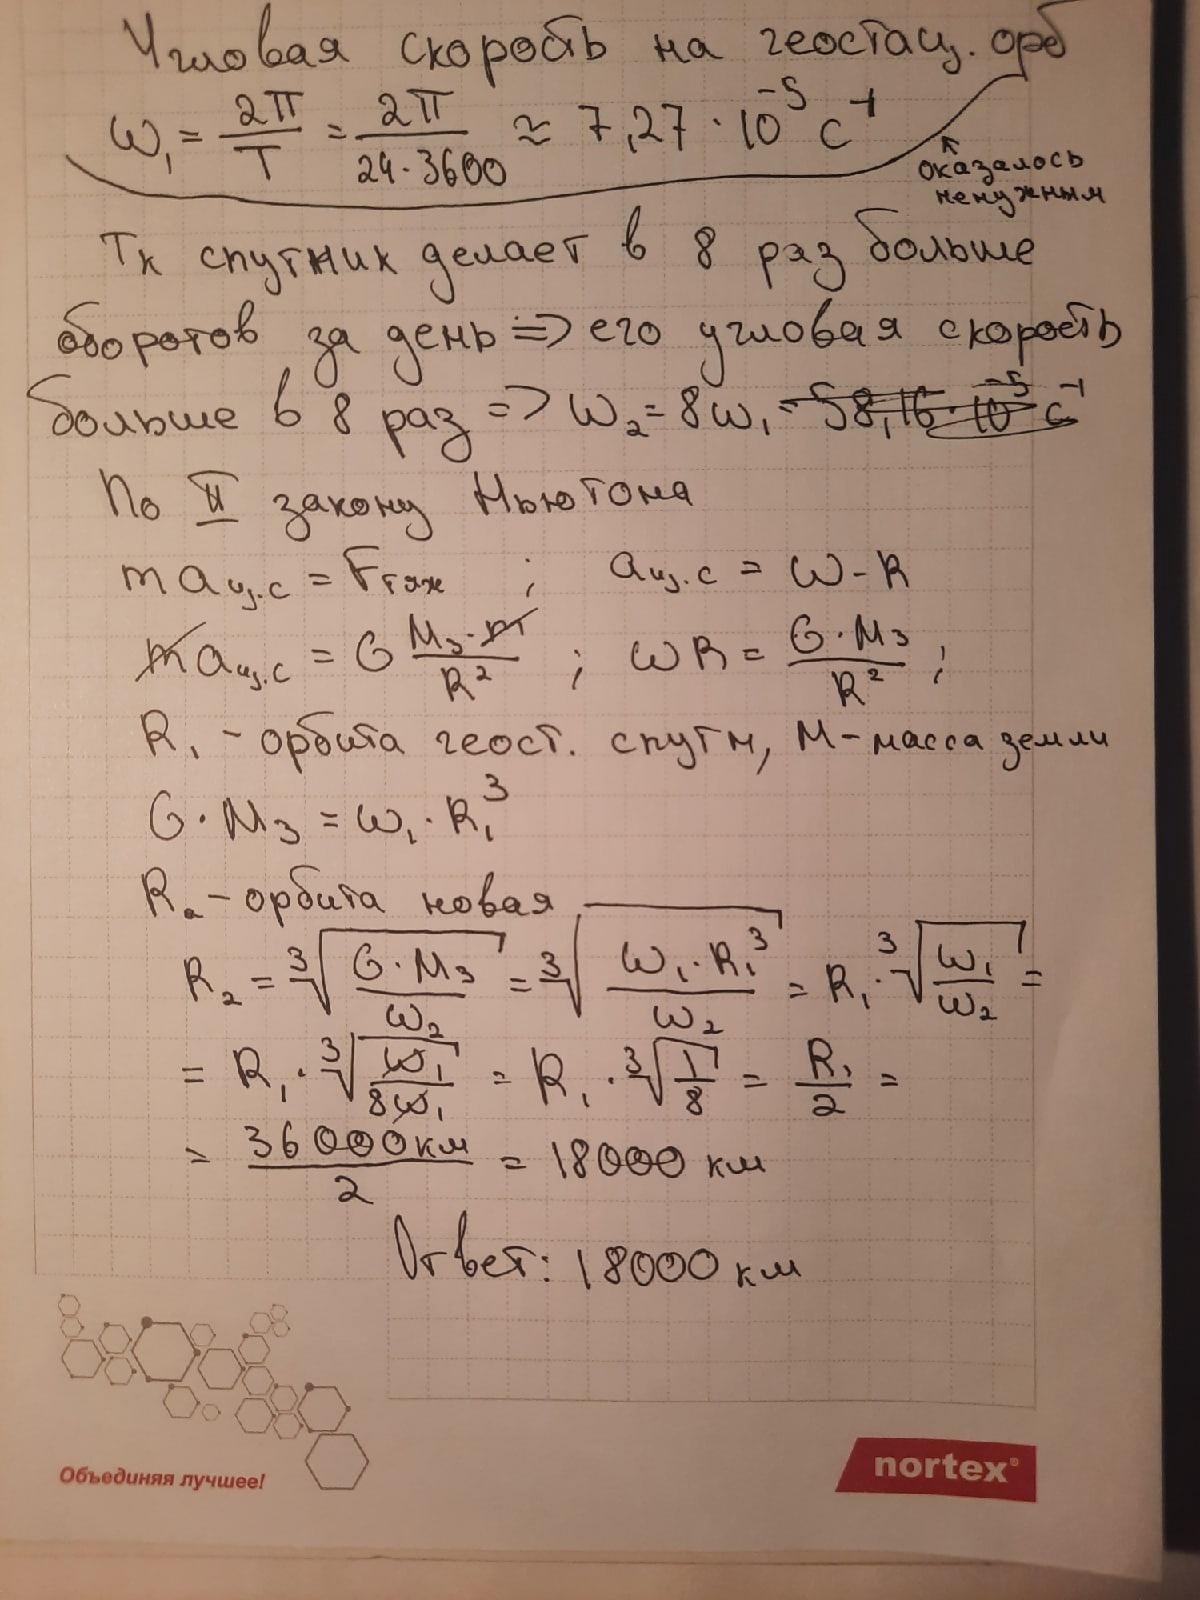 Угловая скорость на геостац. орб
ω₁ = 2π/T = 2π/(24·3600) ≈ 7,27 · 10⁻⁵ с⁻¹
оказалось
ненужным
Тк спутник делает в 8 раз больше
оборотов за день => его угловая скорость
больше в 8 раз => ω₂ = 8ω₁ = 58,16 · 10⁻⁵ с⁻¹
По II закону Ньютона
m aц.с = Fтяж ; aц.с = ω - R
m aц.с = G Mз · m / R² ; ωR = G · Mз / R² ;
R₁ - орбита геост. спутн, M - масса земли
G · Mз = ω₁ · R₁³
R₂ - орбита новая
R₂ = ³√(G · Mз / ω₂) = ³√(ω₁ · R₁³ / ω₂) = R₁ · ³√(ω₁ / ω₂) =
= R₁ · ³√(ω₁ / 8ω₁) = R₁ · ³√(1/8) = R₁/2 =
= 36000км / 2 = 18000 км
Ответ: 18000 км
Объединяя лучшее!
nortex®